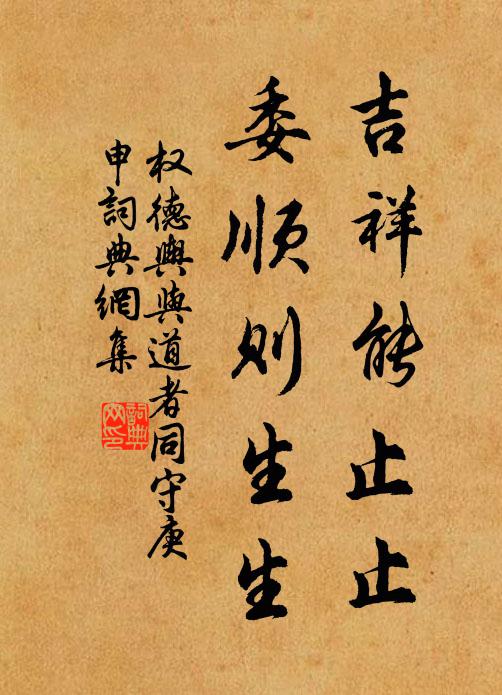 吉祥能止止
委顺则生生
权德舆与道者同守庚
申詞典網集
詞典
网印